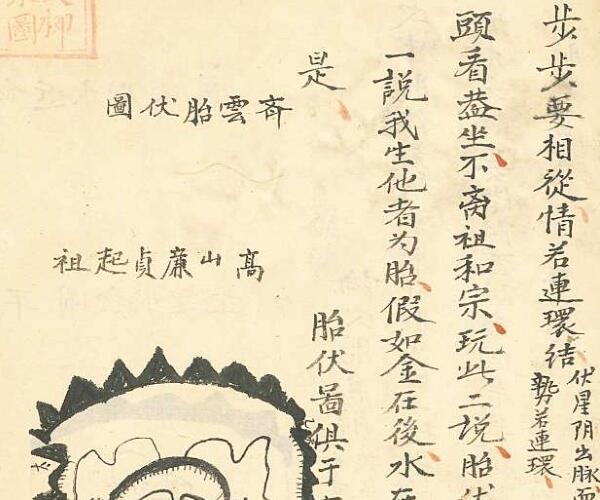 步步要相從情若連環結
伏星阴出脉
势若連環
頭看葢坐不离祖和宗玩此二説胎伏
一説我生他者为胎假如金在後水在
是
胎伏啚俱于
斉雲胎伏圖
高山廉貞起祖